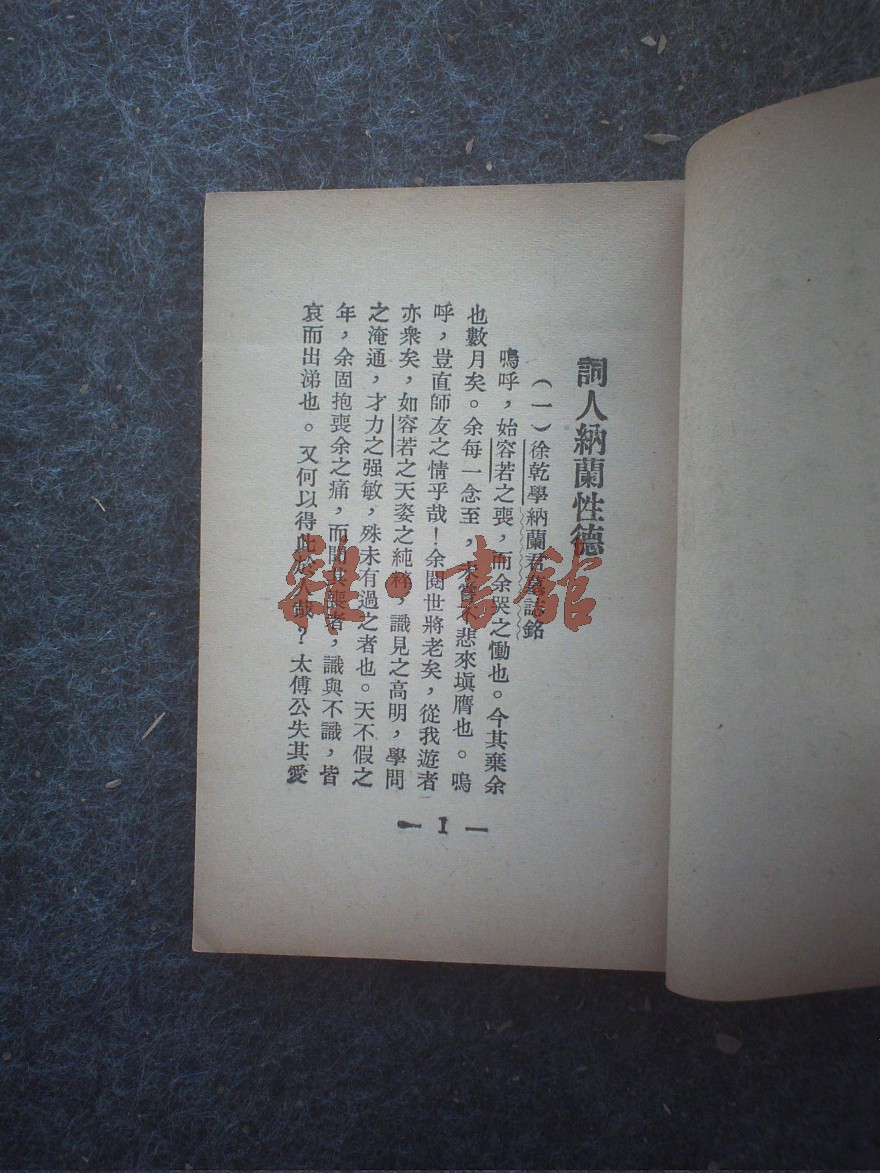 詞人納蘭性德
(一)徐乾學納蘭君墓誌銘
鳴呼,始容若之喪,而余哭之慟也。今其棄余
也數月矣。余每一念至,未嘗不悲來塡膺也。嗚
呼,豈直師友之情乎哉!余閱世將老矣,從我遊者
亦衆矣,如容若之天姿之純粹,識見之高明,學問
之淹通,才力之强敏,殊未有過之者也。天不假之
年,余固抱喪余之痛,而聞其喪者,識與不識,皆
哀而出涕也。又何以得此於人哉?太傅公失其愛
— 1 —
雜·書館